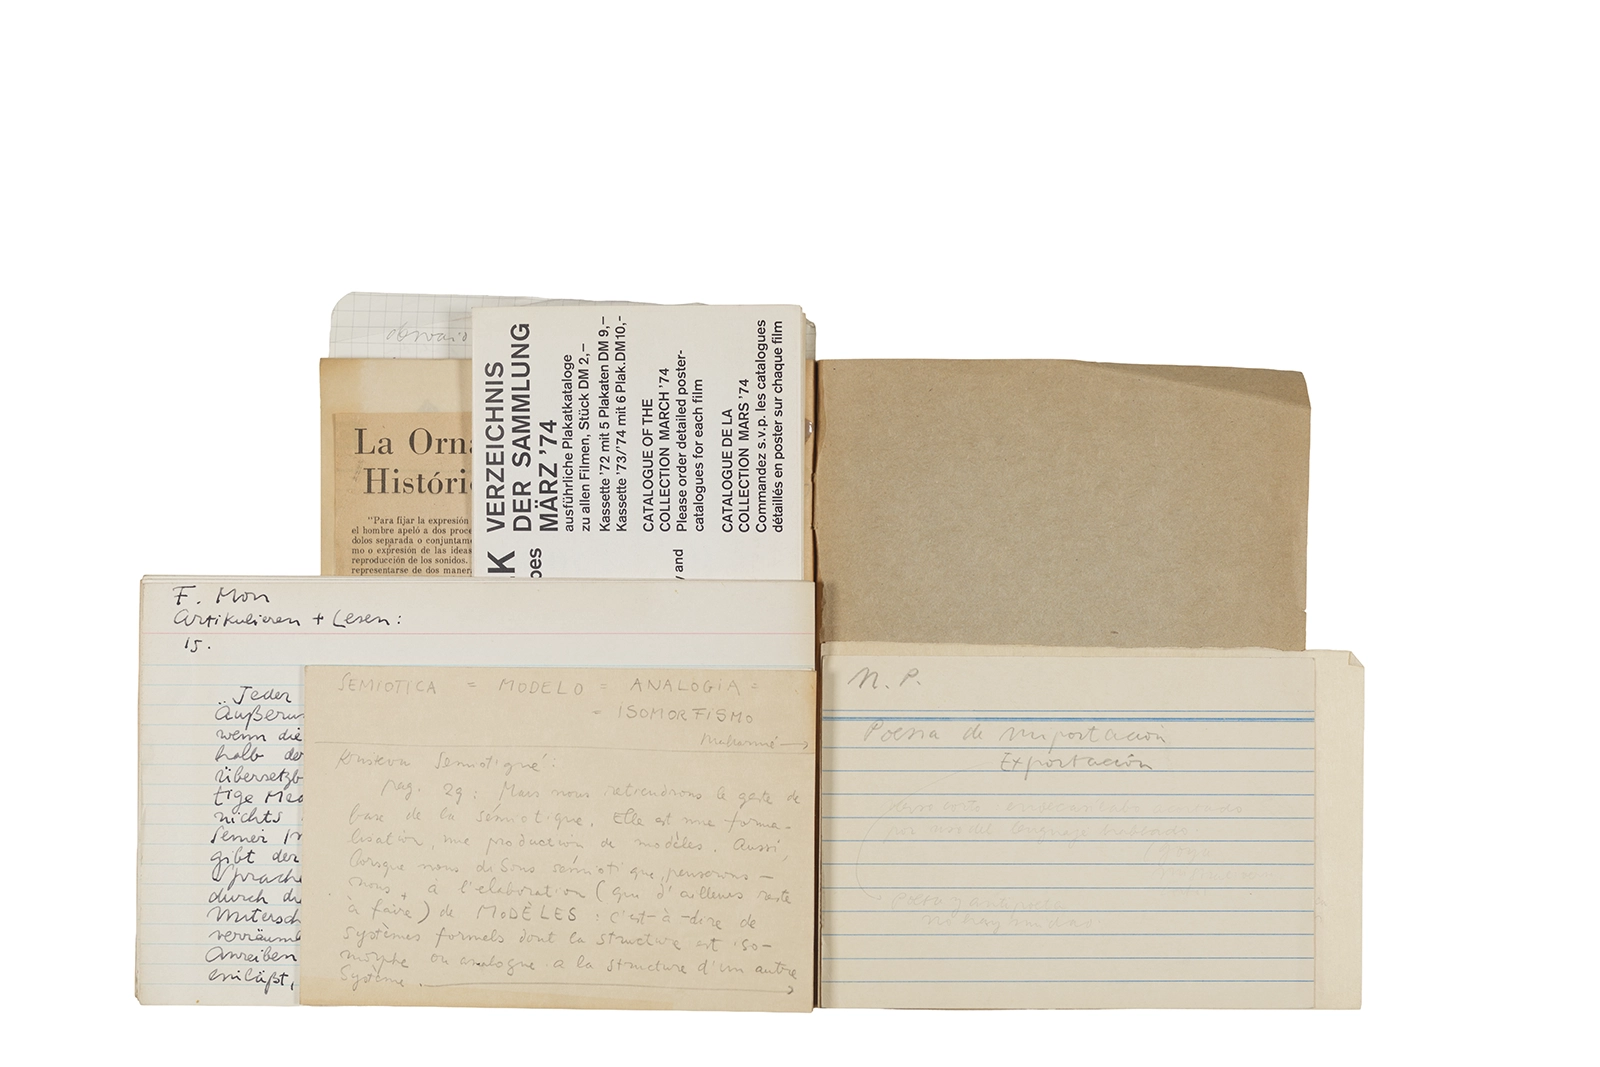 La Orn
Históri
"Para fijar la expresión
el hombre apeló a dos proce
dolos separada o conjuntame
mo o expresión de las ideas
reproducción de los sonidos.
representarse de dos maner
VERZEICHNIS
DER SAMMLUNG
MÄRZ '74
ausführliche Plakatkataloge
zu allen Filmen, Stück DM 2,–
Kassette '72 mit 5 Plakaten DM 9,–
Kassette '73/'74 mit 6 Plak.DM10,–
CATALOGUE OF THE
COLLECTION MARCH '74
Please order detailed poster-
catalogues for each film
CATALOGUE DE LA
COLLECTION MARS '74
Commandez s.v.p. les catalogues
détaillés en poster sur chaque film
K
pes
y and
F. Mon
Artikulieren + Lesen:
15.
Jeder
Äußerun
wenn die
halb de
Übersetzb
tige Med
nichts
seiner
gibt der
Sprache
durch di
Untersch
verräuml
Anreiben
einläßt,
SEMIOTICA = MODELO = ANALOGIA =
= ISOMORFISMO
Mallarmé →
Kristeva Semiotiqué:
pag. 29: Mais nous retiendrons le geste de
base de la sémiotique. Elle est une forma-
lisation, une production de modèles. Aussi,
lorsque nous disons sémiotique, penserons-
nous à l'elaboration (que d'ailleurs reste
à faire) de MODÈLES: c'est-à-dire de
systèmes formels dont la structure est iso-
morphe ou analogue a la structure d'un autre
système.
N. P.
Poesia de importación
Exportación
por
del lenguaje hablado.
(goya
Poesia y antipoesia
ni hay